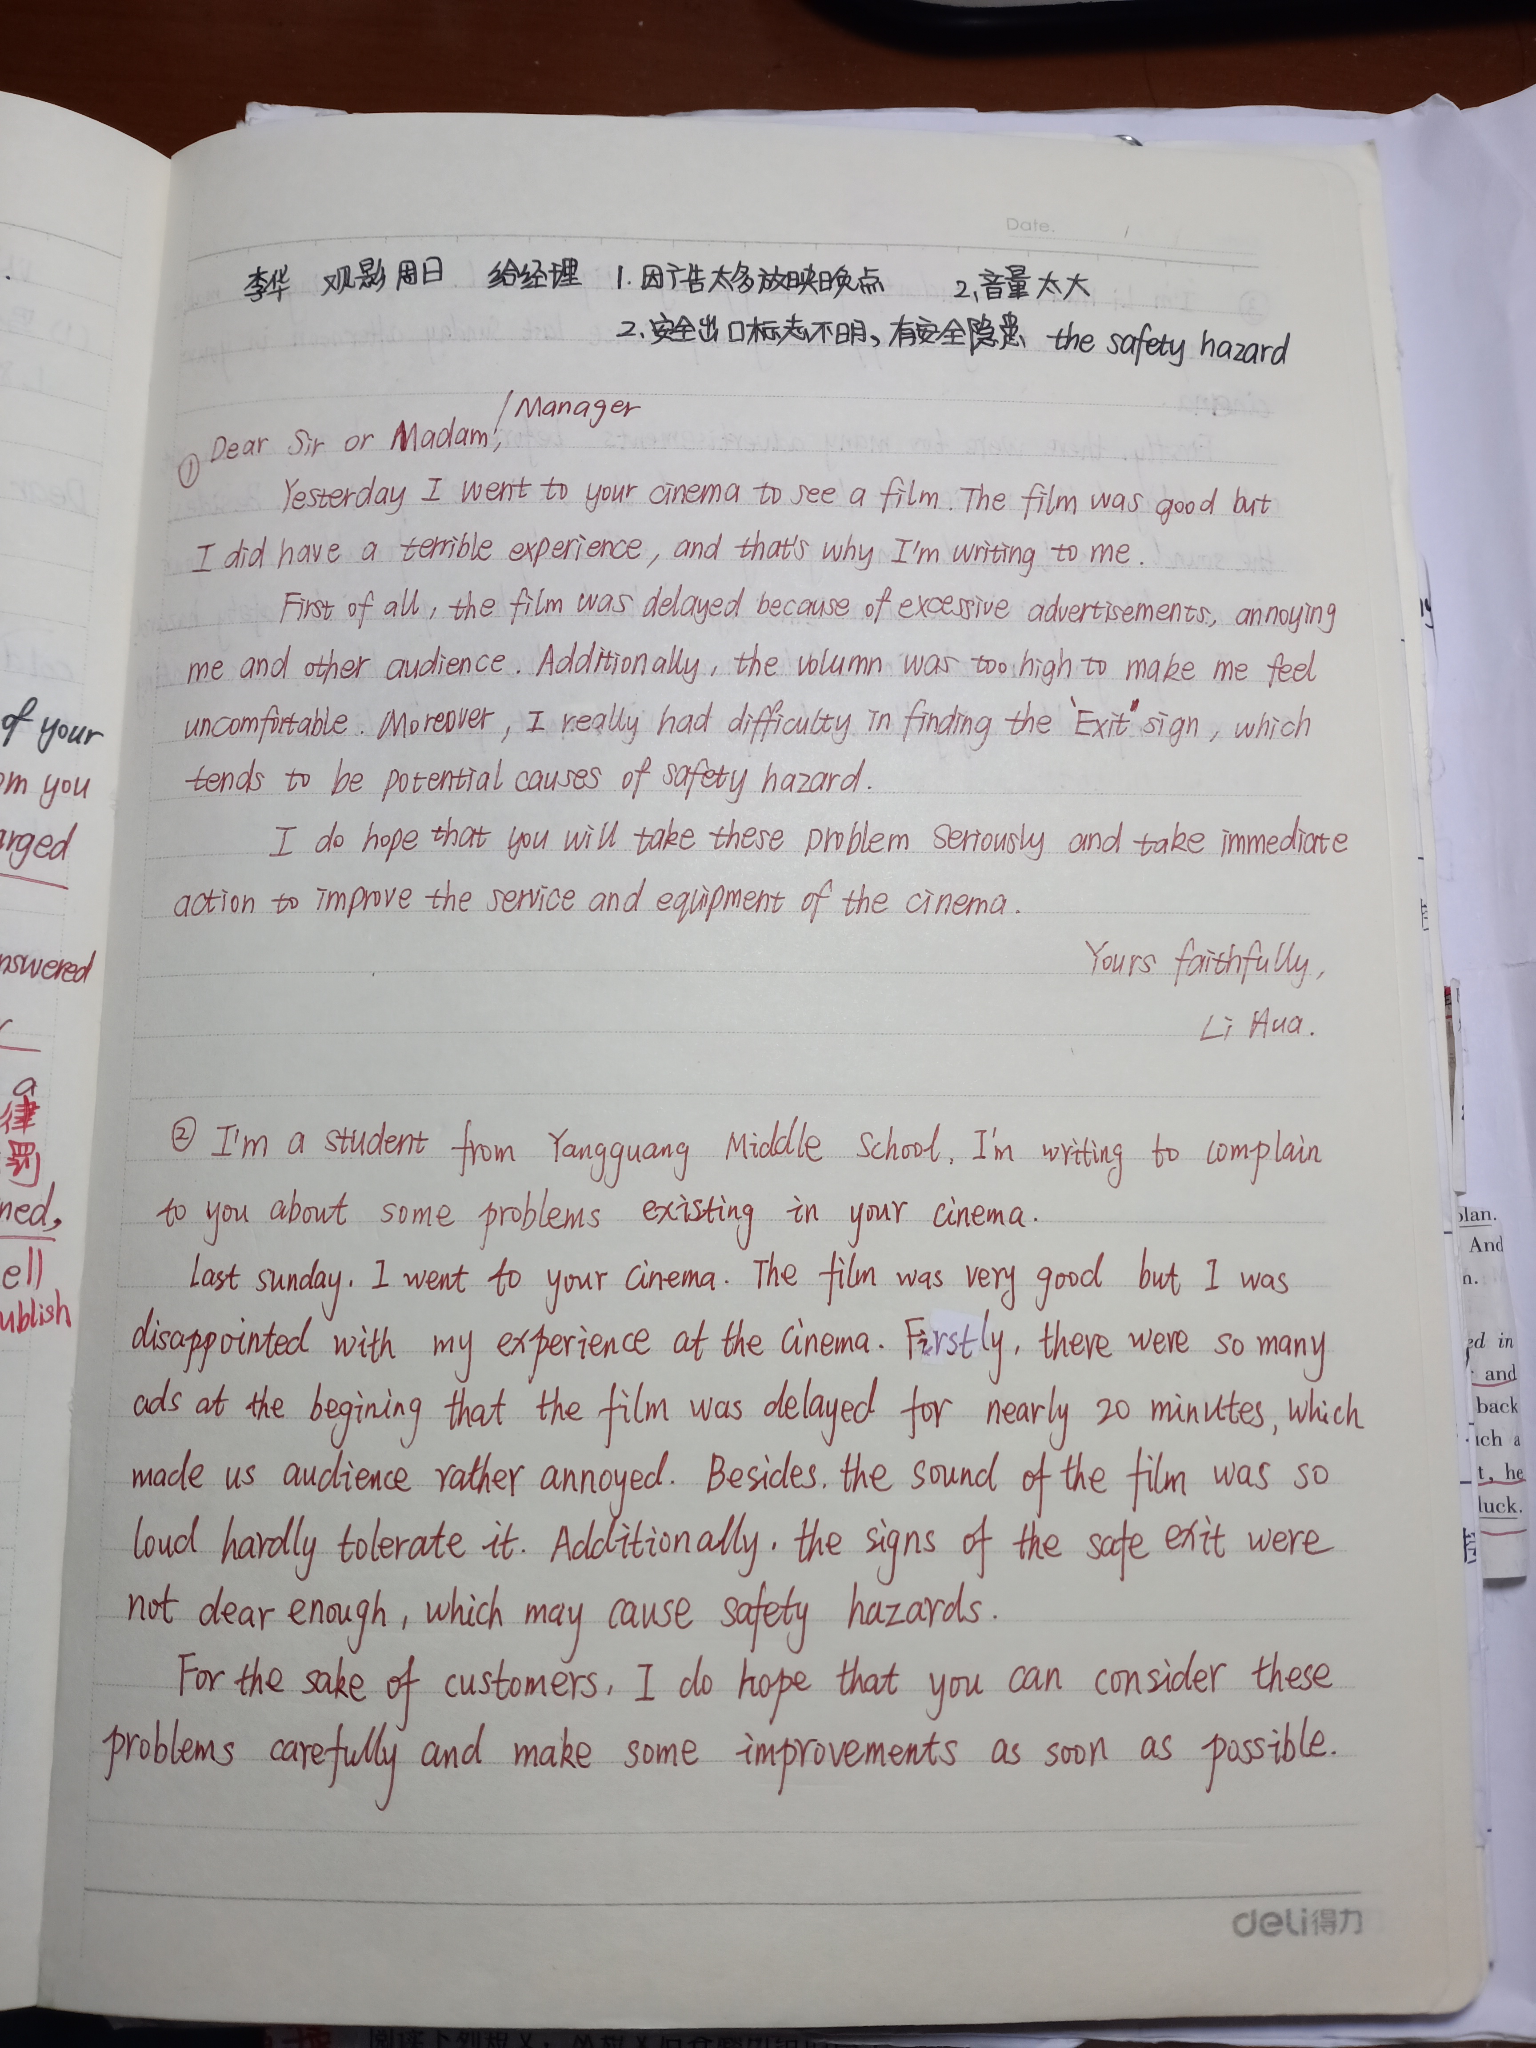 Date.
李华 观影周日 给经理 1.因广告太多放映晚点 2,音量太大
2.安全出口标志不明,有安全隐患 the safety hazard
/Manager
① Dear Sir or Madam,
Yesterday I went to your cinema to see a film. The film was good but
I did have a terrible experience, and that's why I'm writing to me.
First of all, the film was delayed because of excessive advertisements, annoying
me and other audience. Additionally, the volumn was too high to make me feel
uncomfortable. Moreover, I really had difficulty in finding the "Exit" sign, which
tends to be potential causes of safety hazard.
I do hope that you will take these problem seriously and take immediate
action to improve the service and equipment of the cinema.
Yours faithfully,
Li Hua.
② I'm a student from Yangguang Middle School, I'm writing to complain
to you about some problems existing in your cinema.
Last sunday, I went to your cinema. The film was very good but I was
disappointed with my experience at the cinema. Firstly, there were so many
ads at the begining that the film was delayed for nearly 20 minutes, which
made us audience rather annoyed. Besides, the sound of the film was so
loud hardly tolerate it. Additionally, the signs of the safe exit were
not clear enough, which may cause safety hazards.
For the sake of customers, I do hope that you can consider these
problems carefully and make some improvements as soon as possible.
deli得力
of your
om you
arged
nswered
a
律
罚
ned,
ell
ublish
plan.
And
n.
ed in
and
back
uch a
t, he
luck.